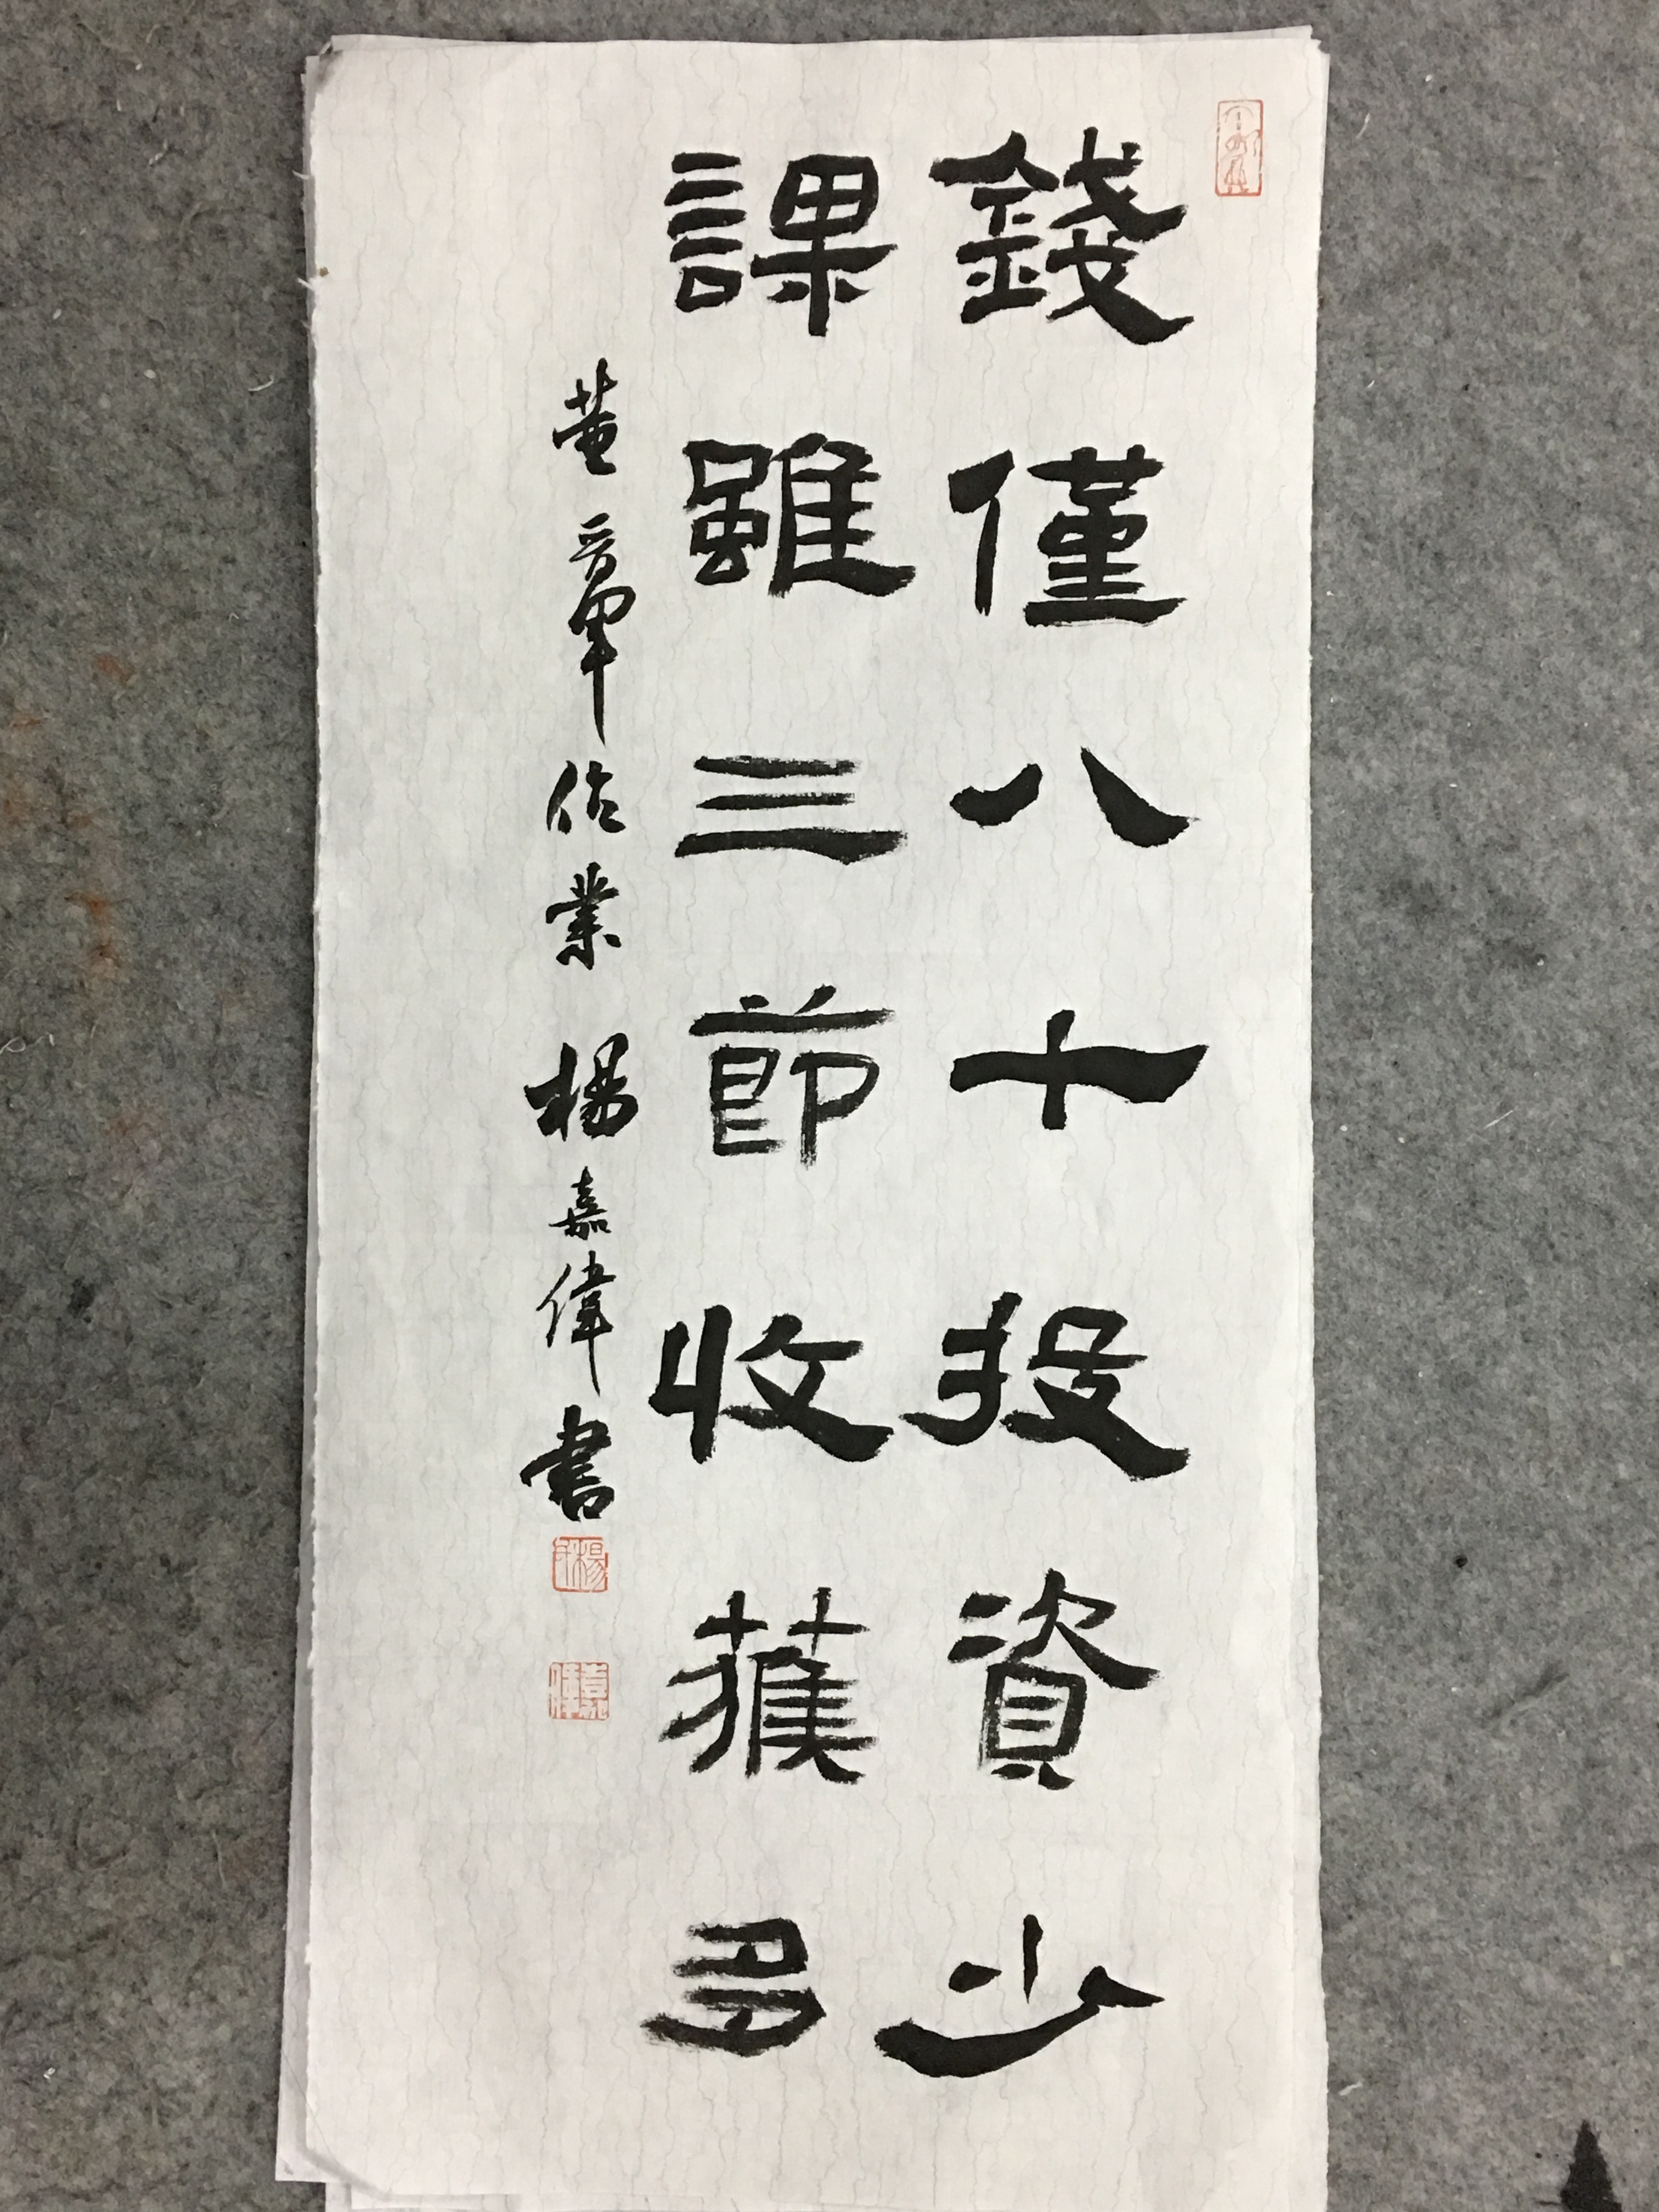 錢僅八十投資少
課雖三節收獲多
黄章作業 楊嘉偉書